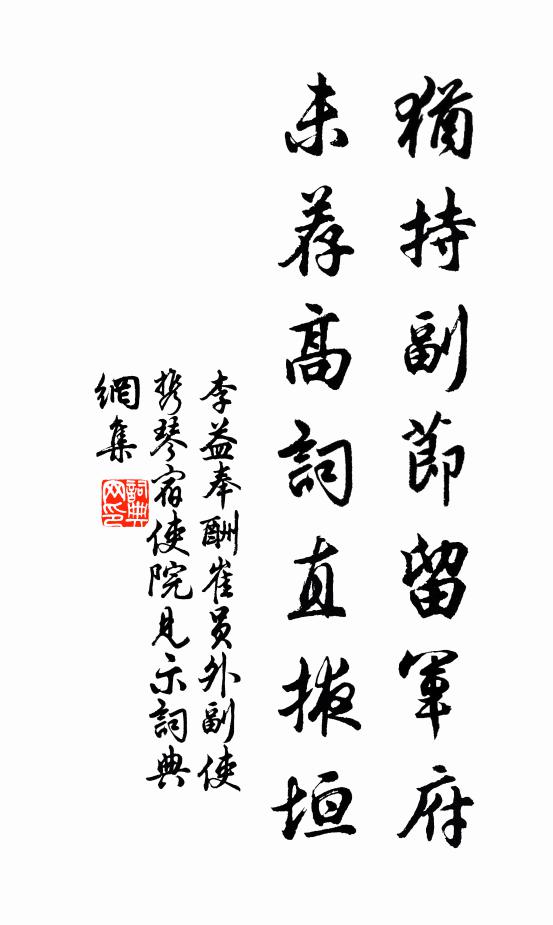 猶持副節留軍府
未荐高詞直掖垣
李益奉酬崔員外副使
携琴宿使院見示詞典
網集
詞典網印